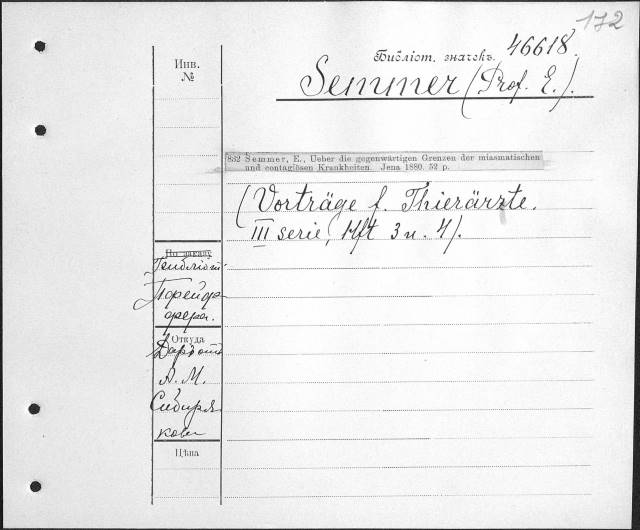 172
Инв.
№
Библіот. значекъ. 46618.
Semmer (Prof. E.).
7832 Semmer, E., Ueber die gegenwärtigen Grenzen der miasmatischen
und contagiösen Krankheiten. Jena 1880. 52 p.
(Vorträge f. Thierärzte.
III serie, Hft 3 u. 4).
По заказу
Гейдф
фера.
Откуда
Даръ отъ
А. М.
Сибиря
кова
Цѣна